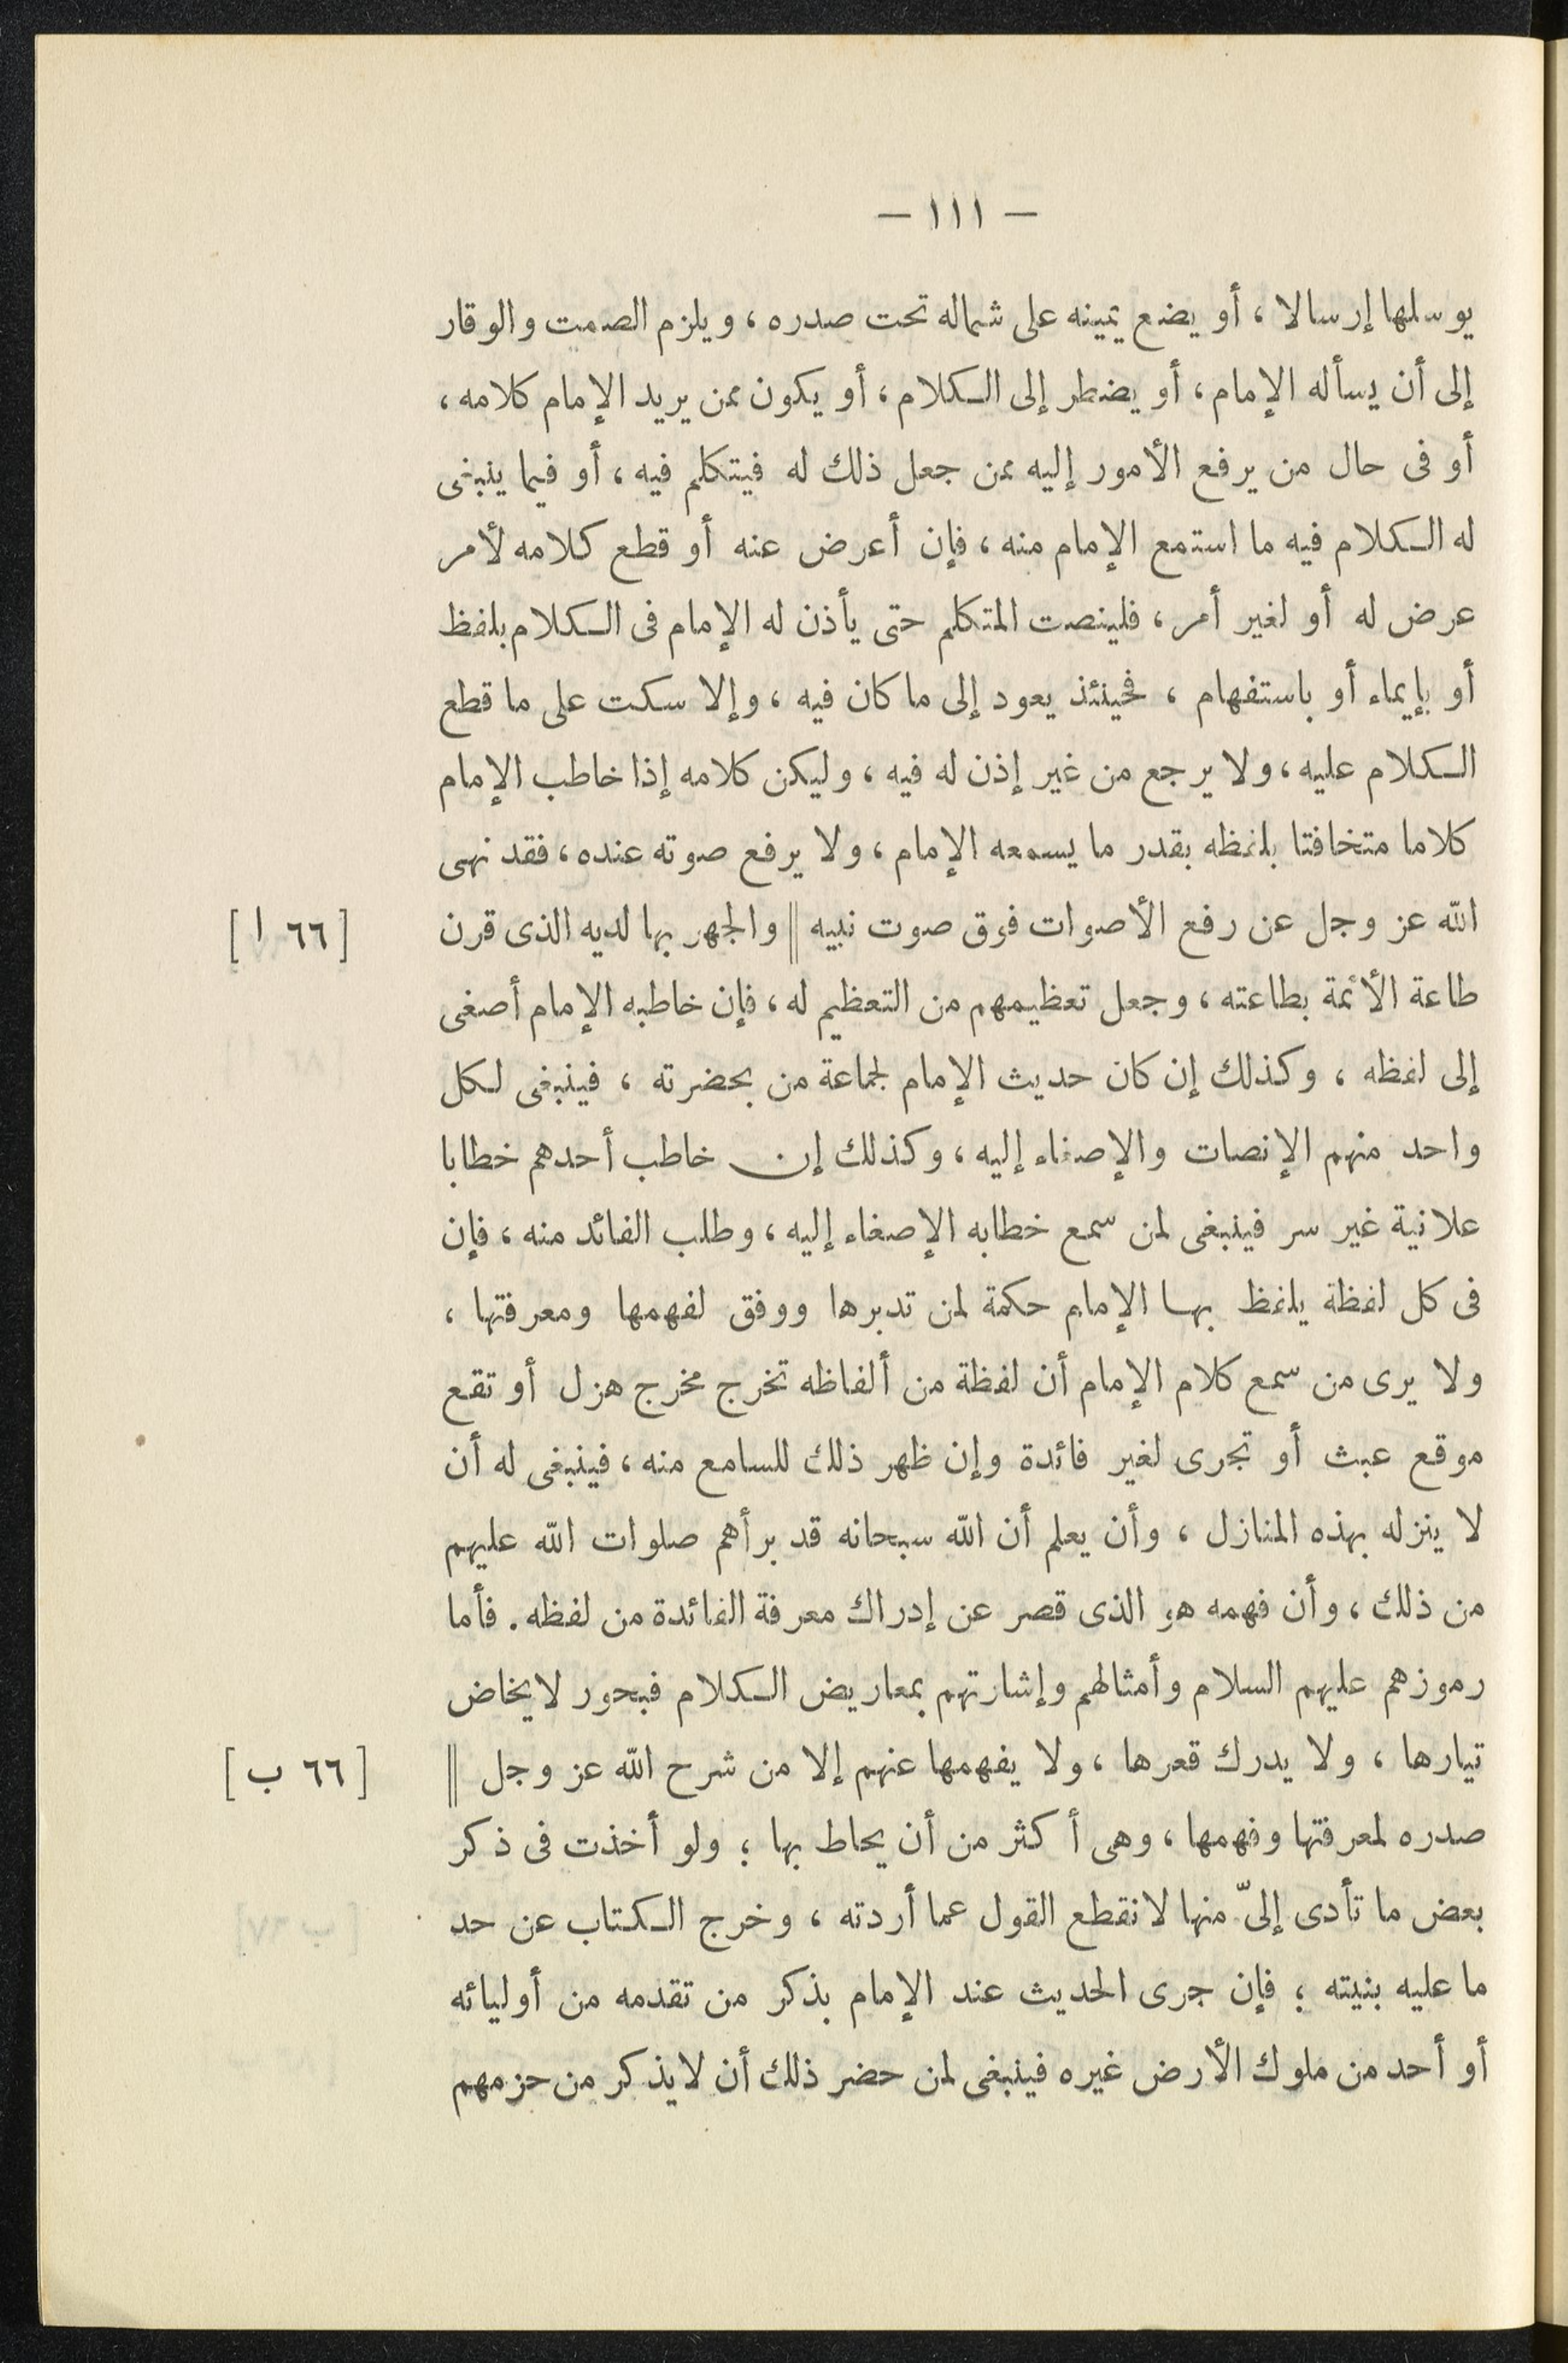 — ١١١ —
يوسلها إرسالا ، أو يضع يمينه على شماله تحت صدره ، ويلزم الصمت والوقار
إلى أن يسأله الإمام ، أو يضطر إلى الكلام ، أو يكون ممن يريد الإمام كلامه ،
أو فى حال من يرفع الأمور إليه ممن جعل ذلك له فيتكلم فيه ، أو فيما ينبغى
له الكلام فيه ما استمع الإمام منه ، فإن أعرض عنه أو قطع كلامه لأمر
عرض له أو لغير أمر ، فلينصت المتكلم حتى يأذن له الإمام فى الكلام بلفظ
أو بإيماء أو باستفهام ، فحينئذ يعود إلى ما كان فيه ، وإلا سكت على ما قطع
الكلام عليه ، ولا يرجع من غير إذن له فيه ، وليكن كلامه إذا خاطب الإمام
كلاما متخافتا بلفظه بقدر ما يسمعه الإمام ، ولا يرفع صوته عنده ، فقد نهى
الله عز وجل عن رفع الأصوات فوق صوت نبيه || والجهر بها لديه الذى قرن [ ٦٦ ا ]
طاعة الأئمة بطاعته ، وجعل تعظيمهم من التعظيم له ، فإن خاطبه الإمام أصغى
إلى لفظه ، وكذلك إن كان حديث الإمام لجماعة من بحضرته ، فينبغى لكل
واحد منهم الإنصات والإصغاء إليه ، وكذلك إن خاطب أحدهم خطابا
علانية غير سر فينبغى لمن سمع خطابه الإصغاء إليه ، وطلب الفائد منه ، فإن
فى كل لفظة يلفظ بها الإمام حكمة لمن تدبرها ووفق لفهمها ومعرفتها ،
ولا يرى من سمع كلام الإمام أن لفظة من ألفاظه تخرج مخرج هزل أو تقع
موقع عبث أو تجرى لغير فائدة وإن ظهر ذلك للسامع منه ، فينبغى له أن
لا ينزله بهذه المنازل ، وأن يعلم أن الله سبحانه قد برأهم صلوات الله عليهم
من ذلك ، وأن فهمه هو الذى قصر عن إدراك معرفة الفائدة من لفظه . فأما
رموزهم عليهم السلام وأمثالهم وإشارتهم بمعاريض الكلام فبحور لا يخاض
تيارها ، ولا يدرك قعرها ، ولا يفهمها عنهم إلا من شرح الله عز وجل || [ ٦٦ ب ]
صدره لمعرفتها وفهمها ، وهى أكثر من أن يحاط بها ؛ ولو أخذت فى ذكر
بعض ما تأدى إلىّ منها لانقطع القول عما أردته ، وخرج الكتاب عن حد
ما عليه بنيته ؛ فإن جرى الحديث عند الإمام بذكر من تقدمه من أوليائه
أو أحد من ملوك الأرض غيره فينبغى لمن حضر ذلك أن لا يذكر من حزمهم